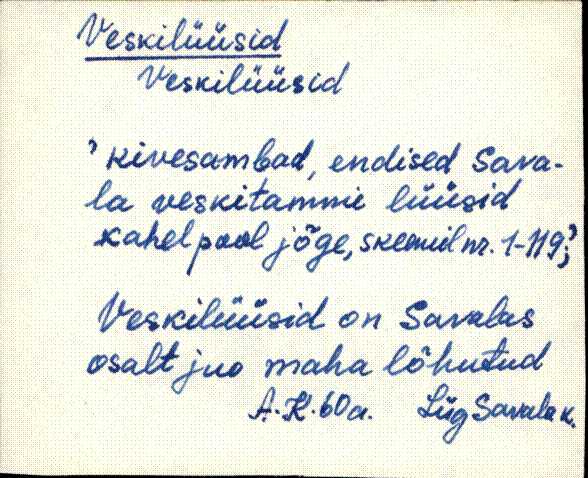 Veskilüüsid
Veskilüüsid
' kivesambad, endised Sava-
la veskitammi lüüsid
kahel pool jõge, skeemil nr. 1-119;'
Veskilüüsid on Savalas
osalt juo maha lõhutud
A.K. 60a. Lüg Savala k.